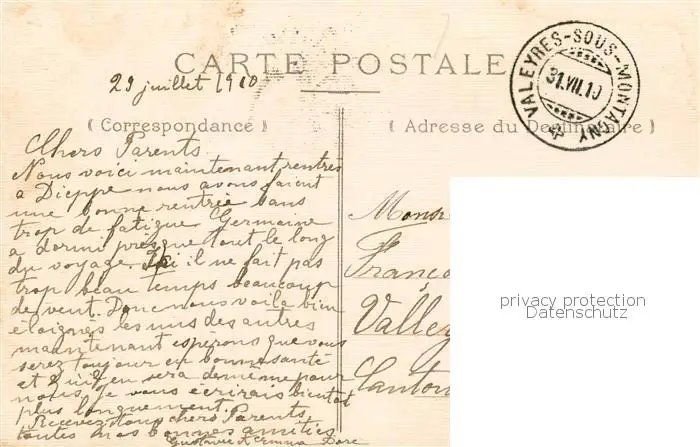 CARTE POSTALE
VALEYRES-SOUS-MONTAGNY
31.VII.10
29 juillet 1910
( Correspondance )
( Adresse du Destinataire )
Chers Parents
Nous voici maintenant rentrés
a Dieppe nous avons faient
une bonne rentrée sans
trop de fatigue Germaine
a dormi presque tout le long
du voyage. Ici il ne fait pas
trop beau temps beaucoup
de vent. Donc nous voila bien
éloignés les uns des autres
maintenant espérons que vous
serez toujour en bonne santé
et qu'il en sera de même pour
nous. Je vous écrirais bientot
plus longuement.
Recevez tous chers Parents
toutes nos bonnes amitiés
Gustave
Monsi
Franço
Valley
Canton
privacy protection
Datenschutz